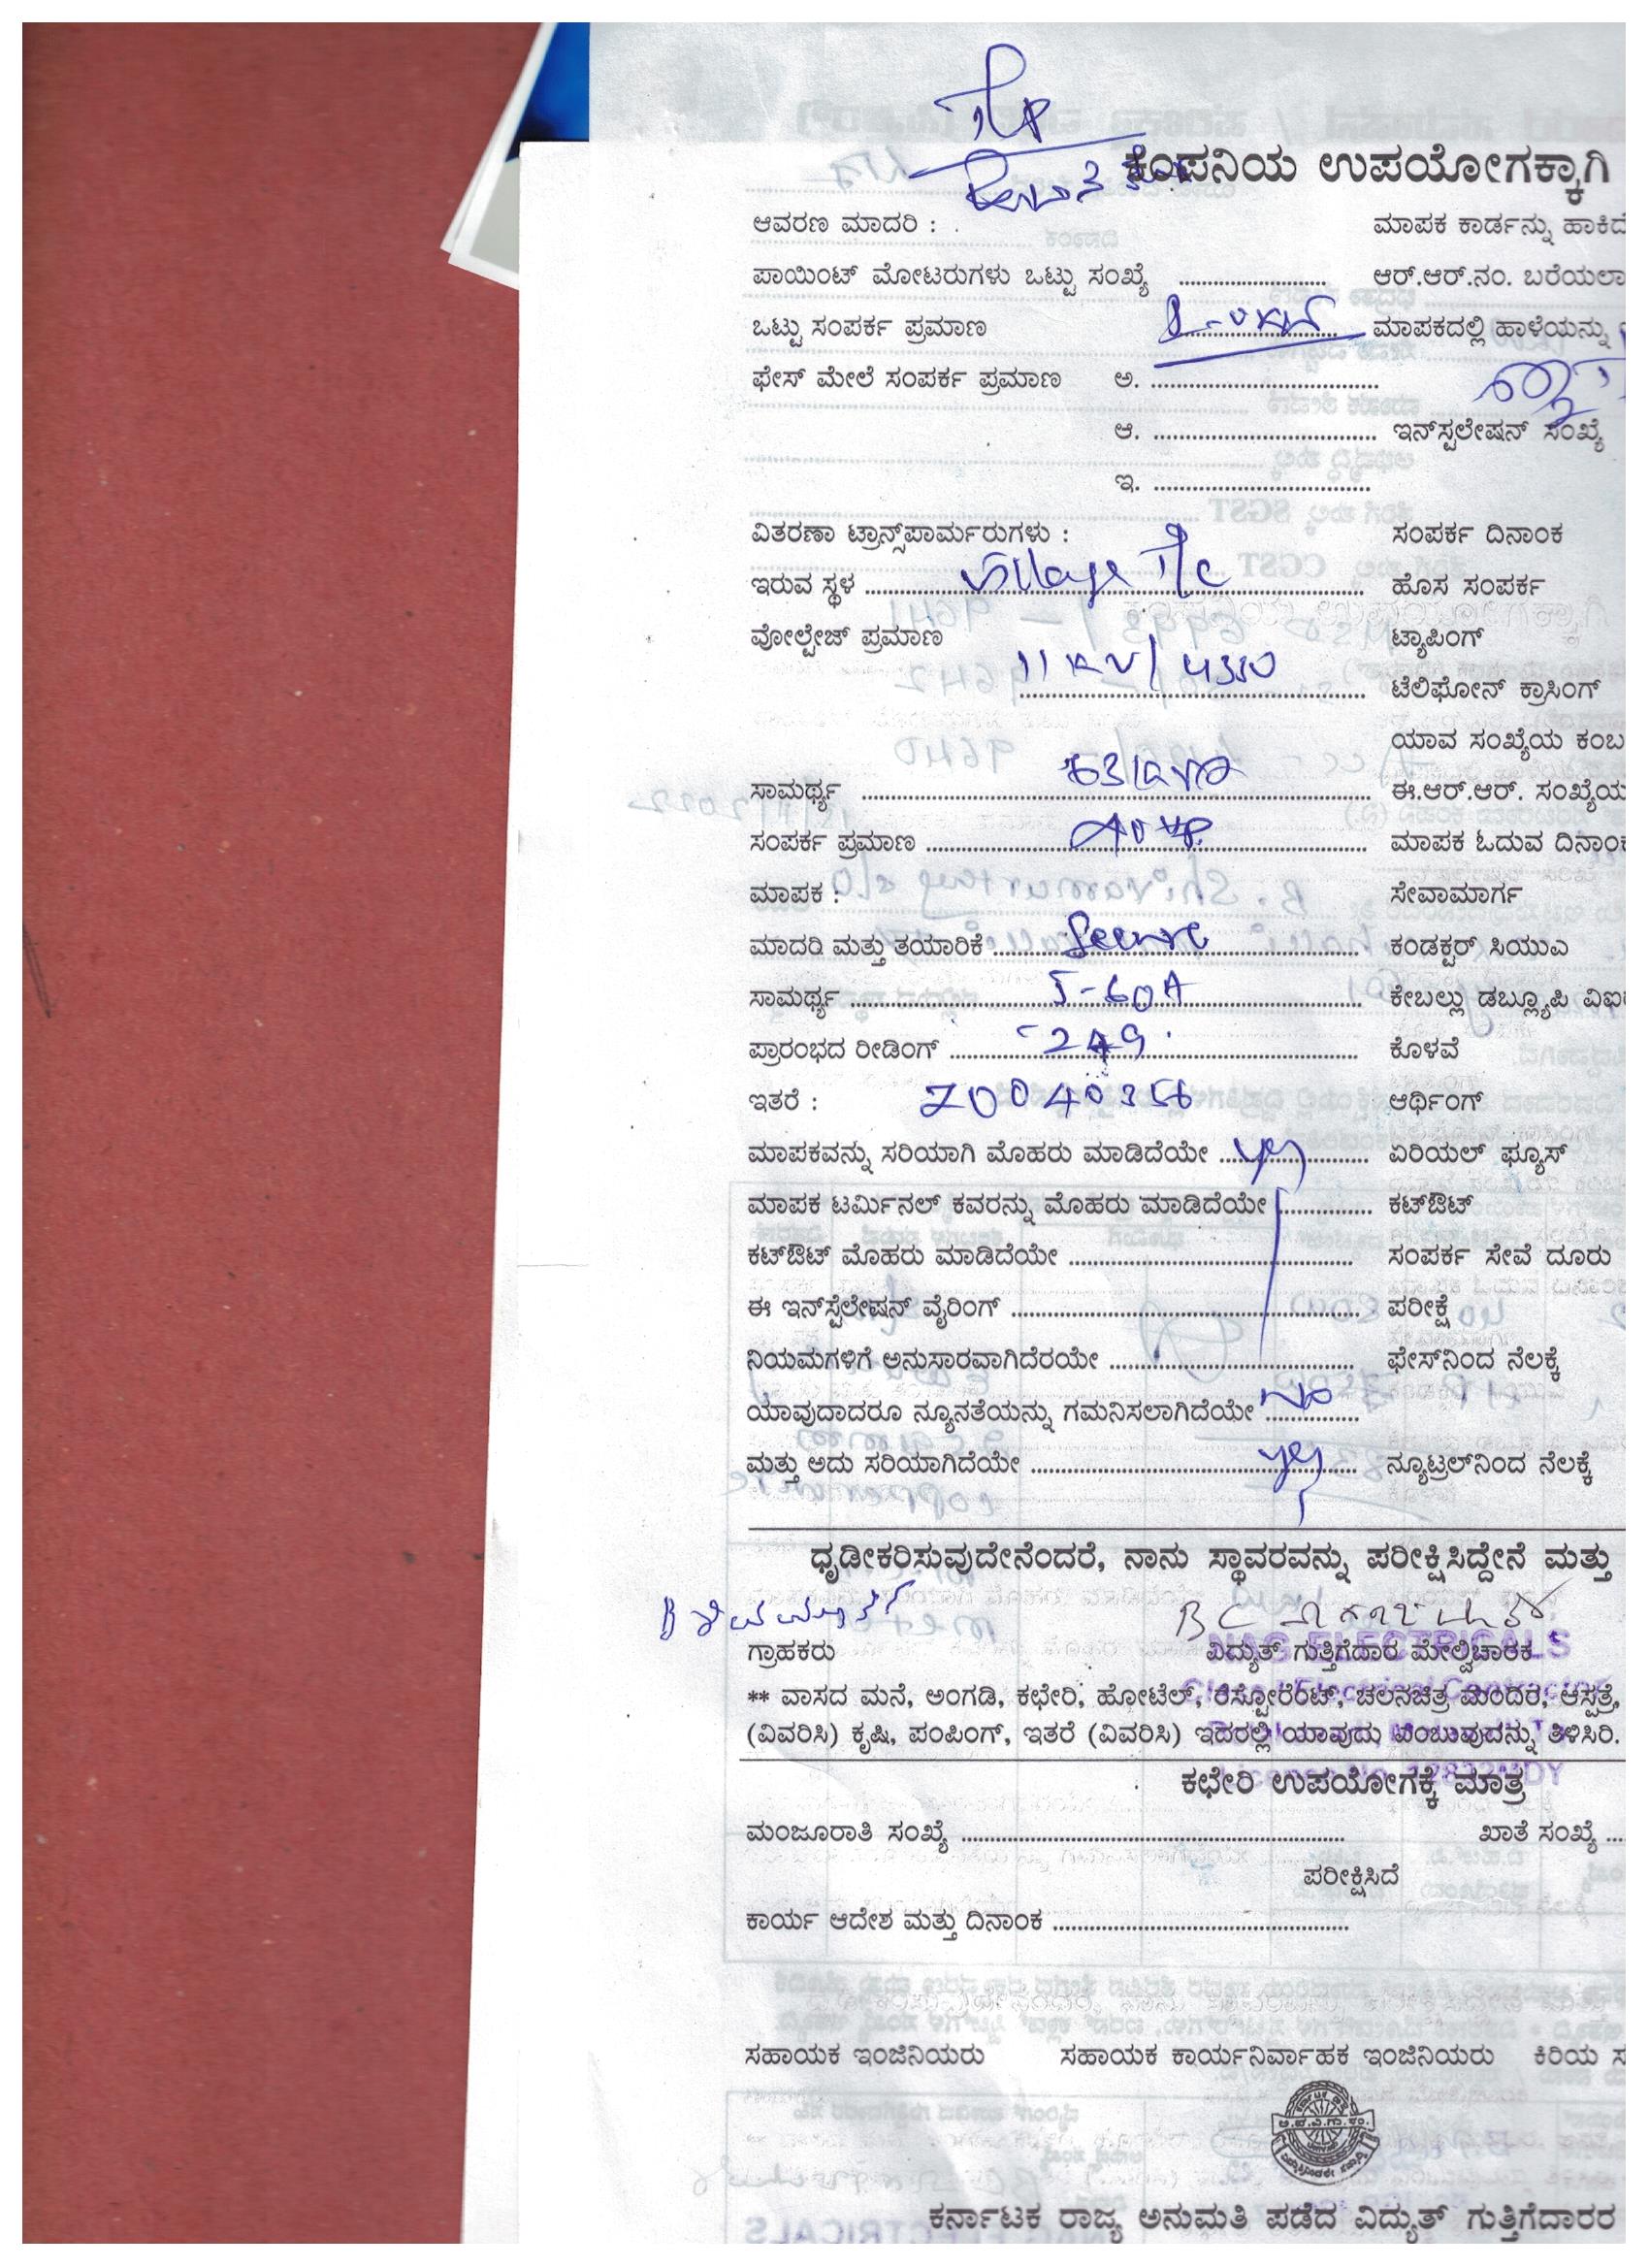 ಕಂಪನಿಯ ಉಪಯೋಗಕ್ಕಾಗಿ
ಆವರಣ ಮಾದರಿ : ಮಾಪಕ ಕಾರ್ಡನ್ನು
ಪಾಯಿಂಟ್ ಮೋಟರುಗಳು ಒಟ್ಟು ಸಂಖ್ಯೆ .......................... ಆರ್.ಆರ್.ನಂ.
ಒಟ್ಟು ಸಂಪರ್ಕ ಪ್ರಮಾಣ ಮಾಪಕದಲ್ಲಿ ಹಾಳೆಯನ್ನು
ಫೇಸ್ ಮೇಲೆ ಸಂಪರ್ಕ ಪ್ರಮಾಣ ಅ. ........................................
ಆ. ....................................... ಇನ್‌ಸ್ಟಲೇಷನ್ ಸಂಖ್ಯೆ
ಇ. ......................................
ವಿತರಣಾ ಟ್ರಾನ್ಸ್‌ಪಾರ್ಮರುಗಳು : ಸಂಪರ್ಕ ದಿನಾಂಕ
ಇರುವ ಸ್ಥಳ Village T/c ಹೊಸ ಸಂಪರ್ಕ
ವೋಲ್ಟೇಜ್ ಪ್ರಮಾಣ ಟ್ಯಾಪಿಂಗ್
11 KV/ ಟೆಲಿಫೋನ್ ಕ್ರಾಸಿಂಗ್
ಯಾವ ಸಂಖ್ಯೆಯ
ಸಾಮರ್ಥ್ಯ 63 KVA ಈ.ಆರ್.ಆರ್.
ಸಂಪರ್ಕ ಪ್ರಮಾಣ ಮಾಪಕ ಓದುವ
ಮಾಪಕ : ಸೇವಾಮಾರ್ಗ
ಮಾದರಿ ಮತ್ತು ತಯಾರಿಕೆ Secure ಕಂಡಕ್ಟರ್ ಸಿಯುಎ
ಸಾಮರ್ಥ್ಯ 5-60A ಕೇಬಲ್ಲು ಡಬ್ಲ್ಯೂಪಿ
ಪ್ರಾರಂಭದ ರೀಡಿಂಗ್ 249 ಕೊಳವೆ
ಇತರೆ : ಆರ್ಥಿಂಗ್
ಮಾಪಕವನ್ನು ಸರಿಯಾಗಿ ಮೊಹರು ಮಾಡಿದೆಯೇ yes ಏರಿಯಲ್ ಫ್ಯೂಸ್
ಮಾಪಕ ಟರ್ಮಿನಲ್ ಕವರನ್ನು ಮೊಹರು ಮಾಡಿದೆಯೇ ................ ಕಟ್‌ಔಟ್
ಕಟ್‌ಔಟ್ ಮೊಹರು ಮಾಡಿದೆಯೇ ................................................ ಸಂಪರ್ಕ ಸೇವೆ ದೂರು
ಈ ಇನ್‌ಸ್ಟೆಲೇಷನ್ ವೈರಿಂಗ್ ............................................................ ಪರೀಕ್ಷೆ
ನಿಯಮಗಳಿಗೆ ಅನುಸಾರವಾಗಿದೆರಯೇ .......................................... ಫೇಸ್‌ನಿಂದ ನೆಲಕ್ಕೆ
ಯಾವುದಾದರೂ ನ್ಯೂನತೆಯನ್ನು ಗಮನಿಸಲಾಗಿದೆಯೇ No
ಮತ್ತು ಅದು ಸರಿಯಾಗಿದೆಯೇ yes ನ್ಯೂಟ್ರಲ್‌ನಿಂದ ನೆಲಕ್ಕೆ
ಧೃಡೀಕರಿಸುವುದೇನೆಂದರೆ, ನಾನು ಸ್ಥಾವರವನ್ನು ಪರೀಕ್ಷಿಸಿದ್ದೇನೆ ಮತ್ತು
B ಶಿವಮೂರ್ತಿ
ಗ್ರಾಹಕರು ವಿದ್ಯುತ್ ಗುತ್ತಿಗೆದಾರ ಮೇಲ್ವಿಚಾರಕ
NAG ELECTRICALS
** ವಾಸದ ಮನೆ, ಅಂಗಡಿ, ಕಛೇರಿ, ಹೋಟೆಲ್, ರೆಸ್ಟೋರೆಂಟ್, ಚಲನಚಿತ್ರ ಮಂದಿರ, ಆಸ್ಪತ್ರೆ,
(ವಿವರಿಸಿ) ಕೃಷಿ, ಪಂಪಿಂಗ್, ಇತರೆ (ವಿವರಿಸಿ) ಇದರಲ್ಲಿ ಯಾವುದು ಎಂಬುವುದನ್ನು ತಿಳಿಸಿರಿ.
ಕಛೇರಿ ಉಪಯೋಗಕ್ಕೆ ಮಾತ್ರ
ಮಂಜೂರಾತಿ ಸಂಖ್ಯೆ .................................................................. ಖಾತೆ ಸಂಖ್ಯೆ ....
ಪರೀಕ್ಷಿಸಿದೆ
ಕಾರ್ಯ ಆದೇಶ ಮತ್ತು ದಿನಾಂಕ ....................................................
ಸಹಾಯಕ ಇಂಜಿನಿಯರು ಸಹಾಯಕ ಕಾರ್ಯನಿರ್ವಾಹಕ ಇಂಜಿನಿಯರು ಕಿರಿಯ
ಕರ್ನಾಟಕ ರಾಜ್ಯ ಅನುಮತಿ ಪಡೆದ ವಿದ್ಯುತ್ ಗುತ್ತಿಗೆದಾರರ